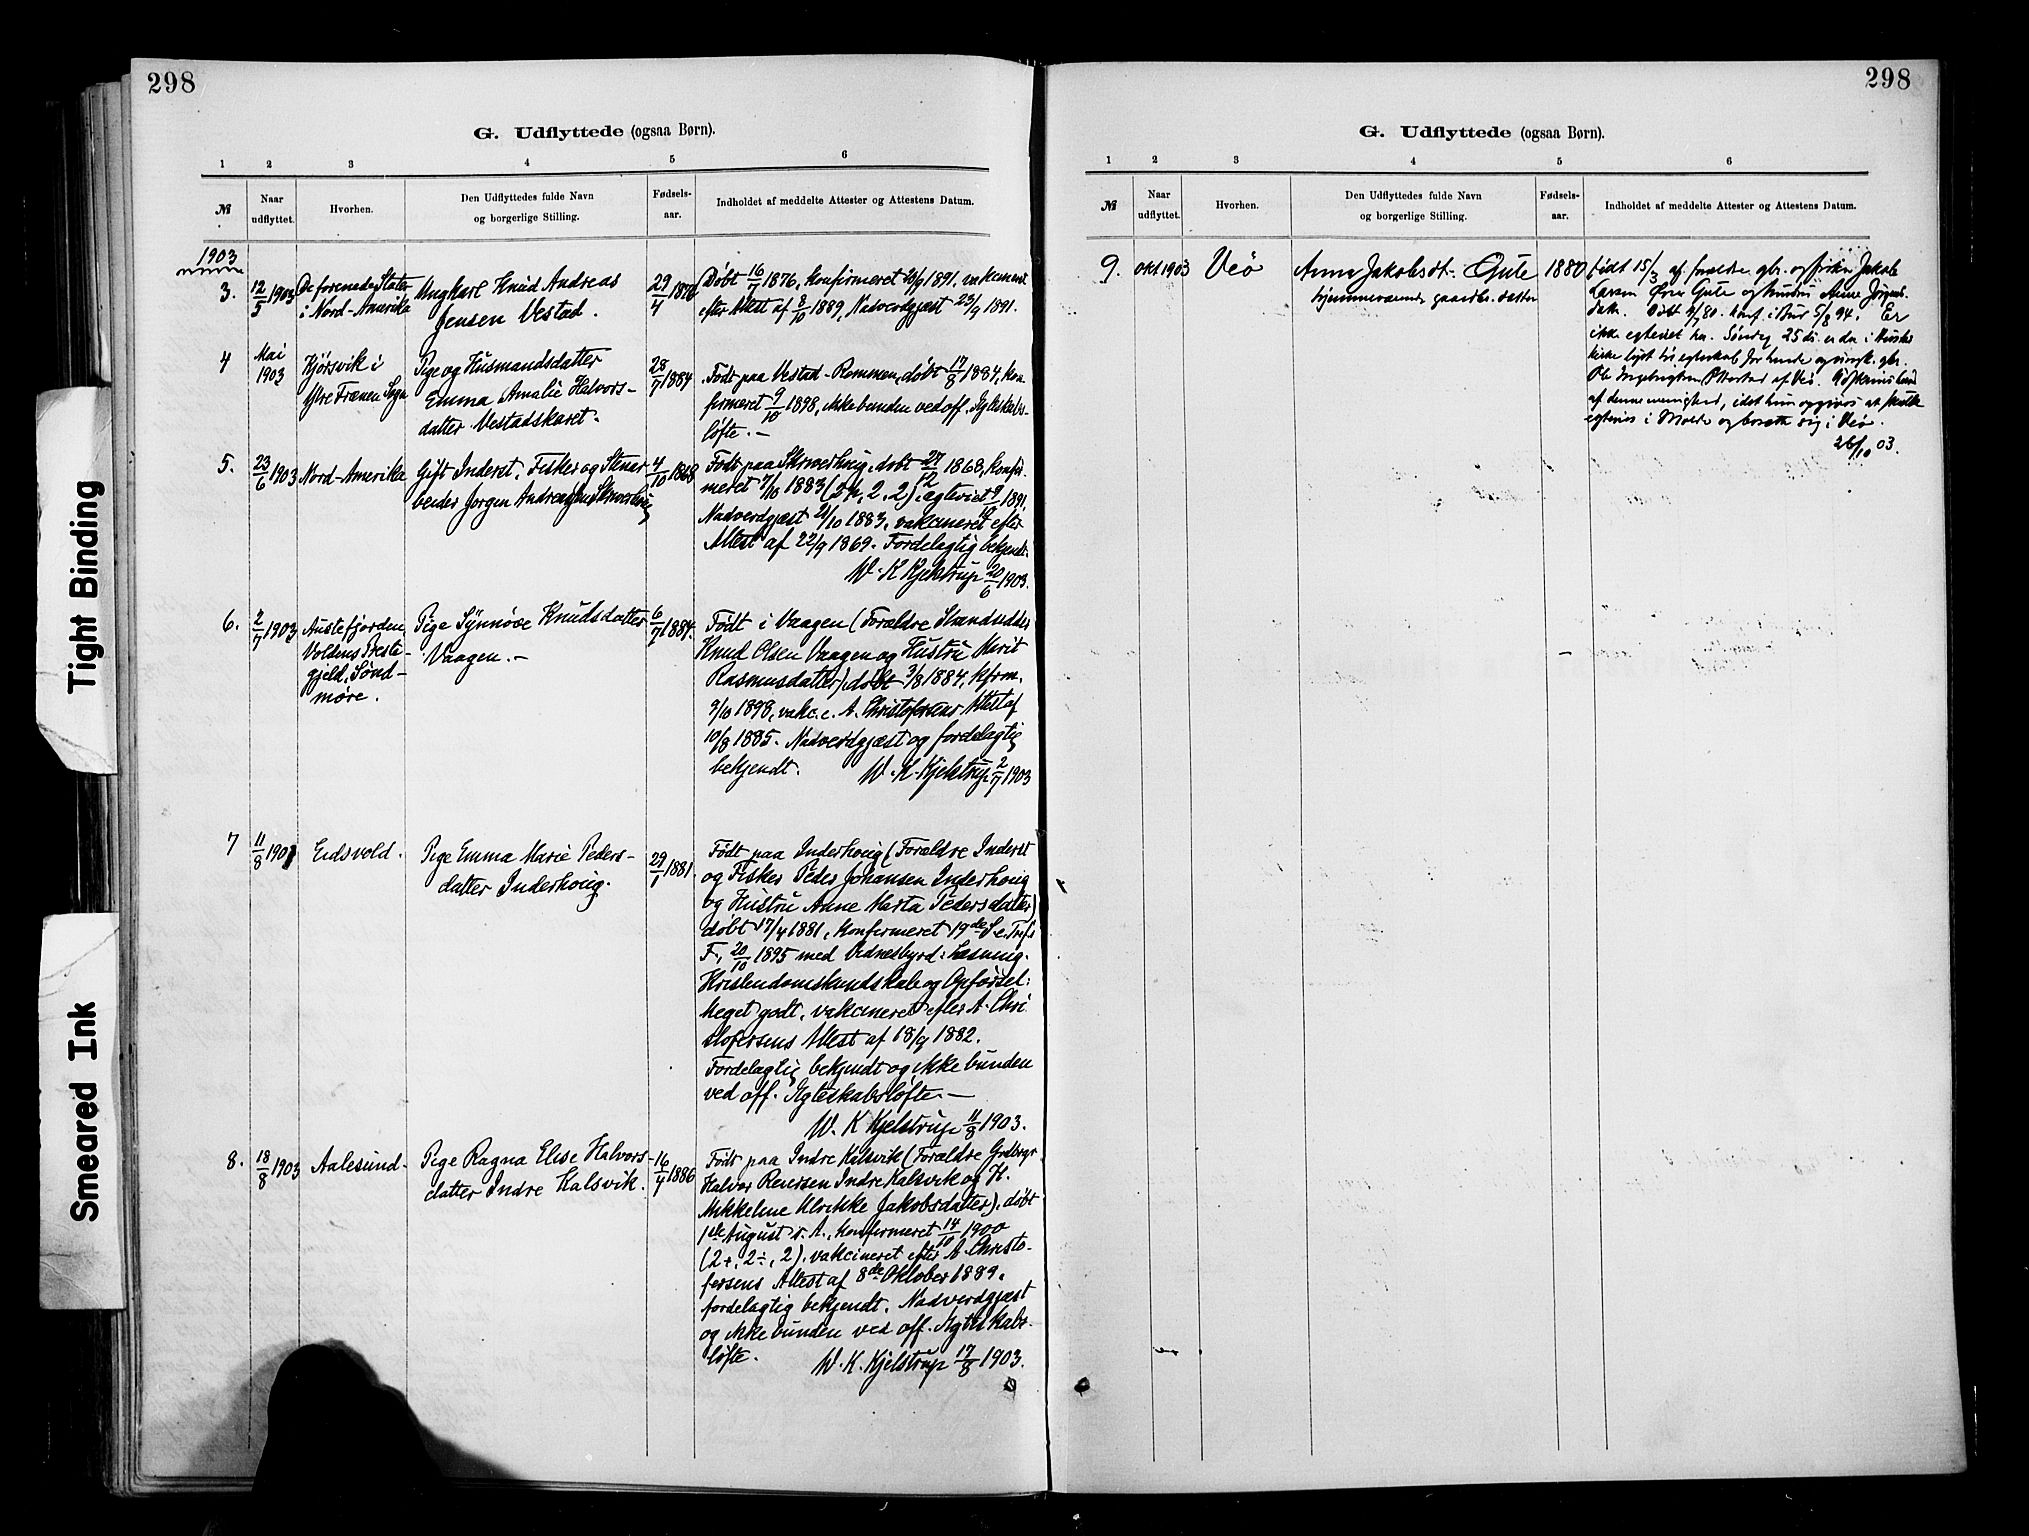 298
G. Udflyttede (ogsaa Børn).
1 2 3 4 5 6
№ Naar udflyttet. Hvorhen. Den Udflyttedes fulde Navn og borgerlige Stilling. Fødsels-aar. Indholdet af meddelte Attester og Attestens Datum.
1903
3. 12/5 1903 De forenede Stater i Nord-Amerika
Ungkarl Knud Andreas
Jensen Vestad.
29/4 1876
Døbt 16/7 1876, konfirmeret 1891, vakcineret
efter Attest af 8/10 1889, Nadverdgjæst 1891.
4 Mai 1903
Kjørsvik i
Ytre Frænen Sogn
Pige og Husmandsdatter
Emma Amalie Halvors-
datter Vestadskaret.
28/7 1884
Født paa Vestad-Remmen, døbt 17/8 1884, kon
firmeret 9/10 1898, ikke bunden ved off. Ægteskabs-
løfte. –
5. 23/6 1903 Nord-Amerika
Gift Inderst, Fisker og
Jørgen Andreas
4/10 1868
Født paa døbt 27/12 1868, konfir
meret 7/10 1883 (2, 2), ægteviet 1891,
Nadverdgjæst 21/10 1883, vakcineret efter
Attest af 22/9 1869. Fordelagtig bekjendt.
W. K Kjelstrup 20/6 1903.
6. 2/7 1903
Austefjorden,
Voldens Preste-
gjeld, Sønd-
møre.
Pige Synnøve Knudsdatter
Vaagen. –
6/7 1884.
Født i Vaagen (Forældre Strandsidder
Knud Olsen Vaagen og Hustru Marit
Rasmusdatter), døbt 3/8 1884, kfrm.
9/10 1898, vakc. e. A. Christofersens Attest af
10/8 1885. Nadverdgjæst og fordelagtig
bekjendt. W. K. Kjelstrup 2/7 1903
7 11/8 1903 Eidsvold.
Pige Emma Marie Peders-
datter Inderhoug.
29/1 1881.
Født paa Inderhoug (Forældre Inderst
og Fisker Peder Johansen Inderhoug
og Hustru Anne Marta Pedersdatter)
døbt 17/4 1881, konfirmeret 19de S. e. Tref.
F., 20/10 1895 med Vidnesbyrd: Læsning.
Kristendomskundskab og Opførsel:
Meget godt, vakcineret efter A. Chri
stofersens Attest af 18/9 1882.
Fordelagtig bekjendt og ikke bunden
ved off. Ægteskabsløfte. –
W. K Kjelstrup 11/8 1903.
8. 18/8 1903 Aalesund-
Pige Ragna Elise Halvors-
datter Indre Kalsvik.
16/4 1886
Født paa Indre Kalsvik (Forældre Grdbrgr.
Halvor Reiersen Indre Kalsvik og H.
Mikkeline Ulrikke Jakobsdatter), døbt
1ste August s. A., konfirmeret 14/10 1900
(2+, 2÷, 2), vakcineret efter A. Christo-
fersens Attest af 8de Oktober 1889.
fordelagtig bekjendt. Nadverdgjæst
og ikke bunden ved off. Ægteskabs-
løfte. W. K. Kjelstrup 17/8 1903.
298
G. Udflyttede (ogsaa Børn).
1 2 3 4 5 6
№ Naar udflyttet. Hvorhen. Den Udflyttedes fulde Navn og borgerlige Stilling. Fødsels-aar. Indholdet af meddelte Attester og Attestens Datum.
9. Okt 1903 Veø
Anna Jakobsdt. Gule
hjemmeværende gaardbr. datter
1880
født 15/3 af forældre gbr. og fisker Jakob
Larsen Øvre Gule og hustru Anne Jørgens-
datt. Døbt 80. konf. i Bud 5/8 94. Er
ikke egteviet her. Søndag 25 ds. er der i Hustad
kirke lyst til egteskab for hende og gbr.
Ole Ingebrigtsen af Veø.
af denne menighed, idet hun opgives at skulle
egtevies i Molde og bosætte sig i Veø.
26/10 03.
Tight Binding
Smeared Ink